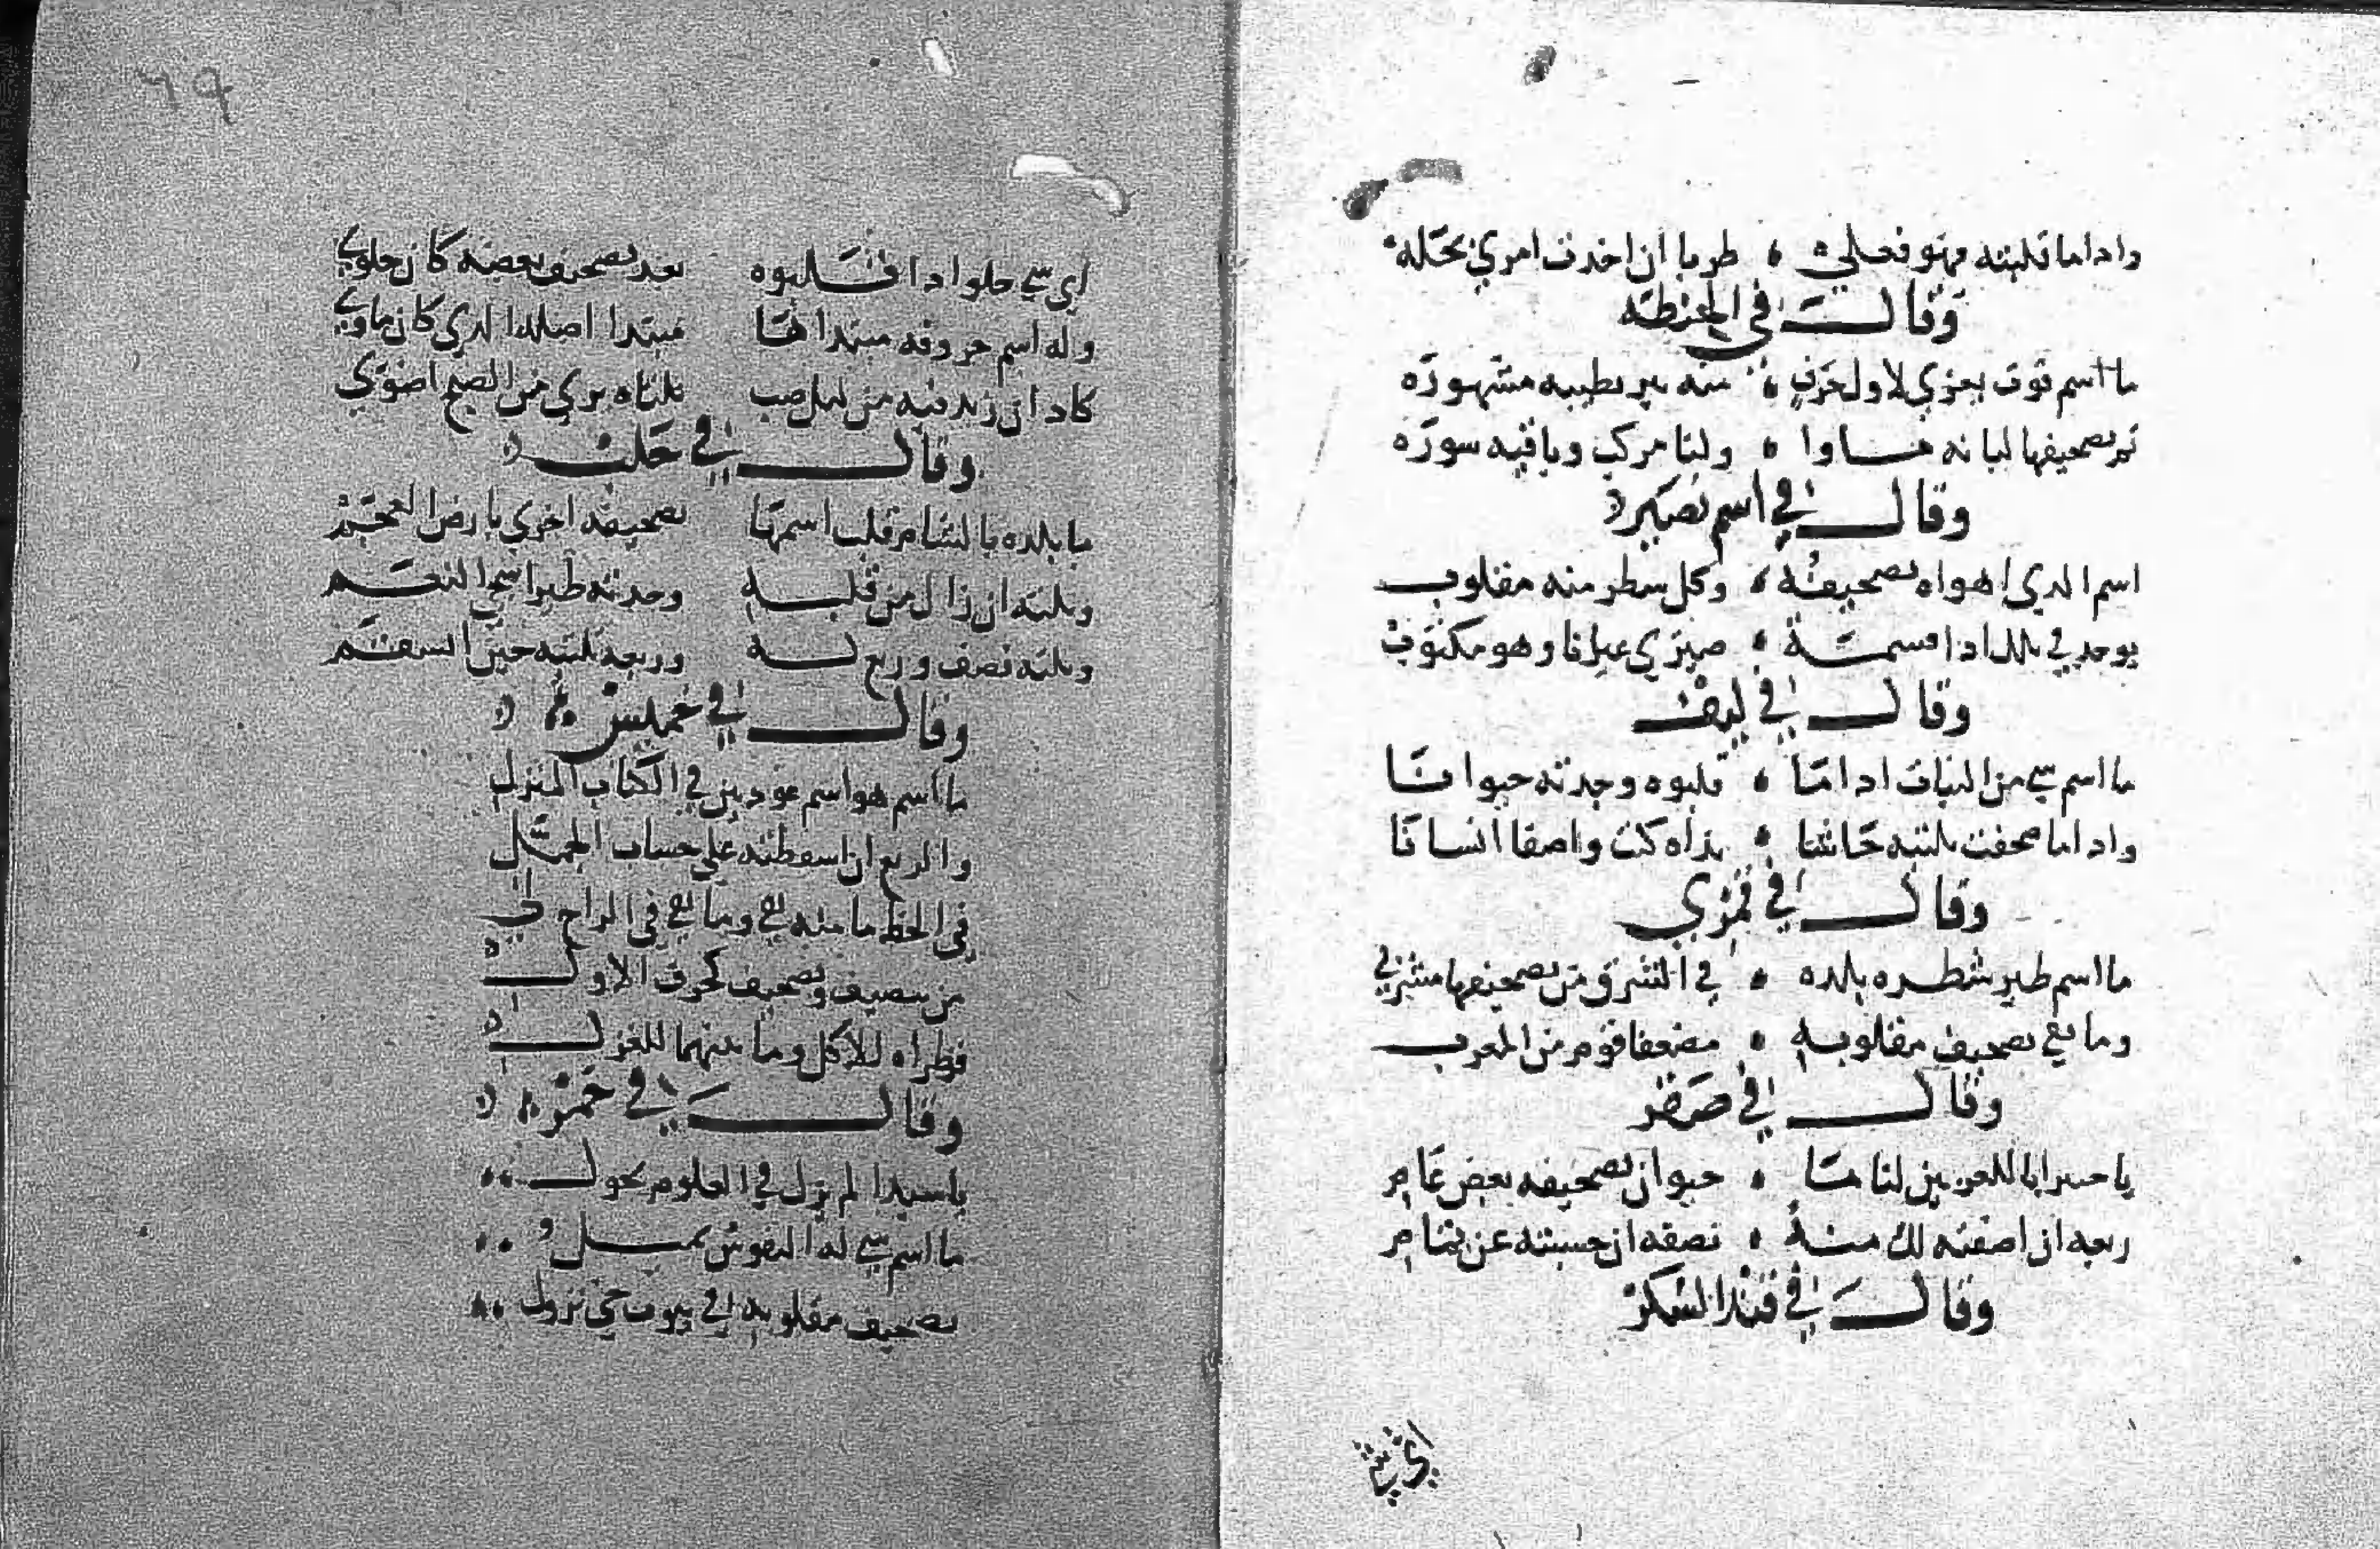 واذا ما قلبته فهو فعلي ، طربا ان اخذت امري بحله
وقال في الحنطة
ما اسم قوت يعزي لاول حرف ، منه بير بطيبه مشهوره
ثم تصحيفها لبانه ماوا ، ولنا مركب وباقيه سوره
وقال في اسم نصير
اسم الذي اهواه تصحيفه ، وكل شطر منه مقلوب
يوجد في تلك اذا قسمت ، ضيزي عيانا وهو مكتوب
وقال في ليف
ما اسم شي من النبات اذا ما ، قلبوه وجدته حيوانا
واذا ما صحفت ثلثيه حاشا ، بذاه كنت واصفا انسانا
وقال في قمري
ما اسم طير شطره بلده ، في الشرق من تصحيفها مشربي
وما بقي تصحيف مقلوبه ، مضعفا قوم من المغرب
وقال في صقر
يا خبيرا باللغز بين لنا ما ، حيوان تصحيفه بعض عام
ربعه ان اضفته لك منه ، نصفه ان حسبته عن تمام
وقال في قند السكر
اي شي
٦٩
اي شي حلو اذا قلبوه بعد تصحيف بعضه كان خلوي
وله اسم حروفه مبتداها مبتدا اصله الذي كان ماوي
كاد ان زيد فيه من ليل صب ثلثاه يري من الصبح اضوي
وقال في حلب
ما بلدة بالشام قلب اسمها تصحيفه اخري بارض العجم
وثلثه ان زال من قلبه وجدته طيرا شجي النغم
وثلثه نصف وربع له وربعه ثلثيه حين انقسم
وقال في خميس
ما اسم هو اسم في الكتاب المنزل
والربع ان اسقطته علي حساب الجمل
في الخط ما منه بقي وما بقي في المراح لي
من نصيف وتصحيف لحرف الاول
فطراه للاكل وما بينهما للغزل
وقال في خمره
يا سيدا لم يزل في العلوم يجول
ما اسم شي له النفوس تميل
تصحيف مقلوبه في بيوت حي نزول